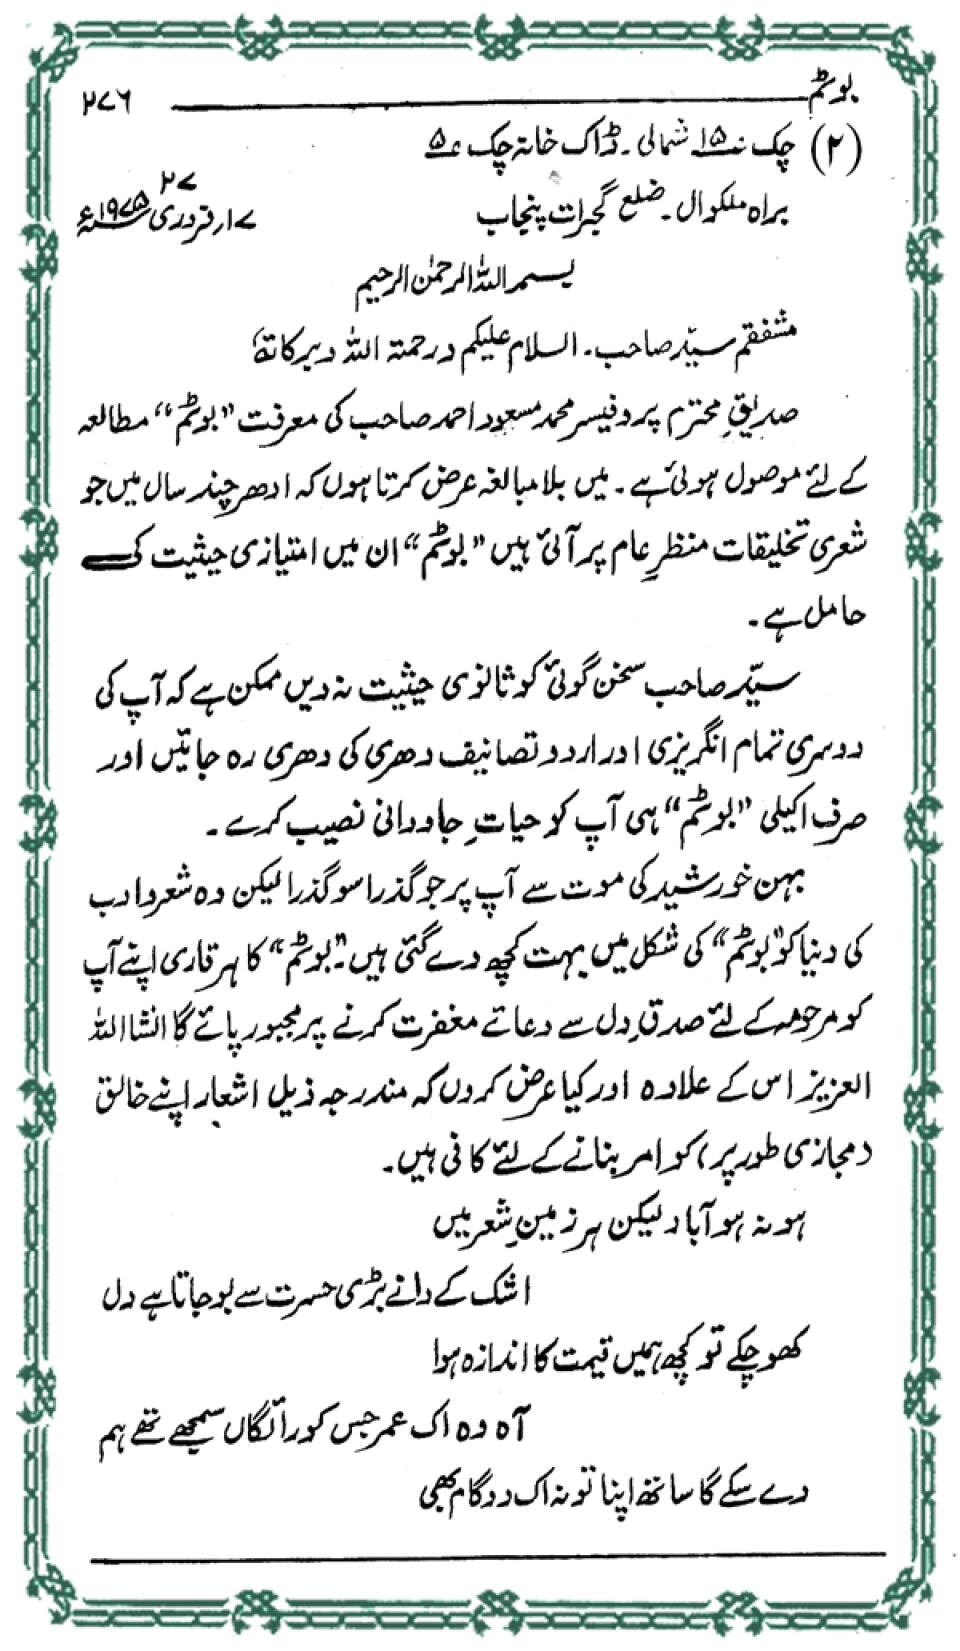 بوٹم ۲۷۶
(۲) چک نمبر ۱۵ شمالی۔ ڈاک خانہ چک ۵
براہ ملکوال۔ ضلع گجرات پنجاب
۲۷
۱۷ر فروری ۱۹۷۵ء
بسم اللہ الرحمٰن الرحیم
مشفقم سیّد صاحب۔ السلام علیکم ورحمتہ اللہ وبرکاتہٗ
صدیقِ محترم پروفیسر محمد مسعود احمد صاحب کی معرفت "بوٹم" مطالعہ
کے لئے موصول ہوئی ہے۔ میں بلا مبالغہ عرض کرتا ہوں کہ ادھر چند سال میں جو
شعری تخلیقات منظرِ عام پر آئی ہیں "بوٹم" ان میں امتیازی حیثیت کے
حامل ہے۔
سیّد صاحب سخن گوئی کو ثانوی حیثیت نہ دیں ممکن ہے کہ آپ کی
دوسری تمام انگریزی اور اردو تصانیف دھری کی دھری رہ جائیں اور
صرف اکیلی "بوٹم" ہی آپ کو حیاتِ جاودانی نصیب کرے۔
بہن خورشید کی موت سے آپ پر جو گذرا سو گذرا لیکن وہ شعر و ادب
کی دنیا کو "بوٹم" کی شکل میں بہت کچھ دے گئی ہیں۔ "بوٹم" کا ہر قاری اپنے آپ
کو مرحومہ کے لئے صدقِ دل سے دعائے مغفرت کرنے پر مجبور پائے گا انشا اللہ
العزیز اس کے علاوہ اور کیا عرض کروں کہ مندرجہ ذیل اشعار اپنے خالق
(مجازی طور پر) کو امر بنانے کے لئے کافی ہیں۔
ہو نہ ہو آباد لیکن ہر زمینِ شعر میں
اشک کے دانے بڑی حسرت سے بو جاتا ہے دل
کھو چکے تو کچھ ہمیں قیمت کا اندازہ ہوا
آہ وہ اک عمر جس کو رائگاں سمجھے تھے ہم
دے سکے گا ساتھ اپنا تو نہ اک دو گام بھی